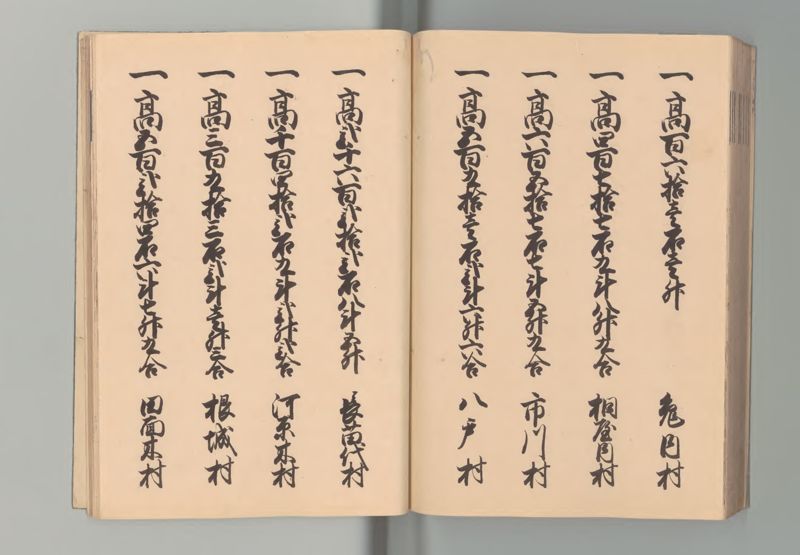 一高百六拾壱石壱升 兎内村
一高四百七拾七石九斗八升九合 桐屋内村
一高六百五拾七石七斗五升九合 市川村
一高五百九拾壱石弐斗六升六合 八戸村
一高弐千六百弐拾弐石八斗五升 長苗代村
一高千百四拾弐石九斗弐升弐合 河原木村
一高三百九拾三石弐斗壱升三合 根城村
一高五百弐拾四石六斗七升九合 田面木村